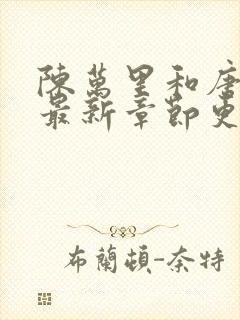 陳萬里和唐
最新章節更
布蘭頓-奈特